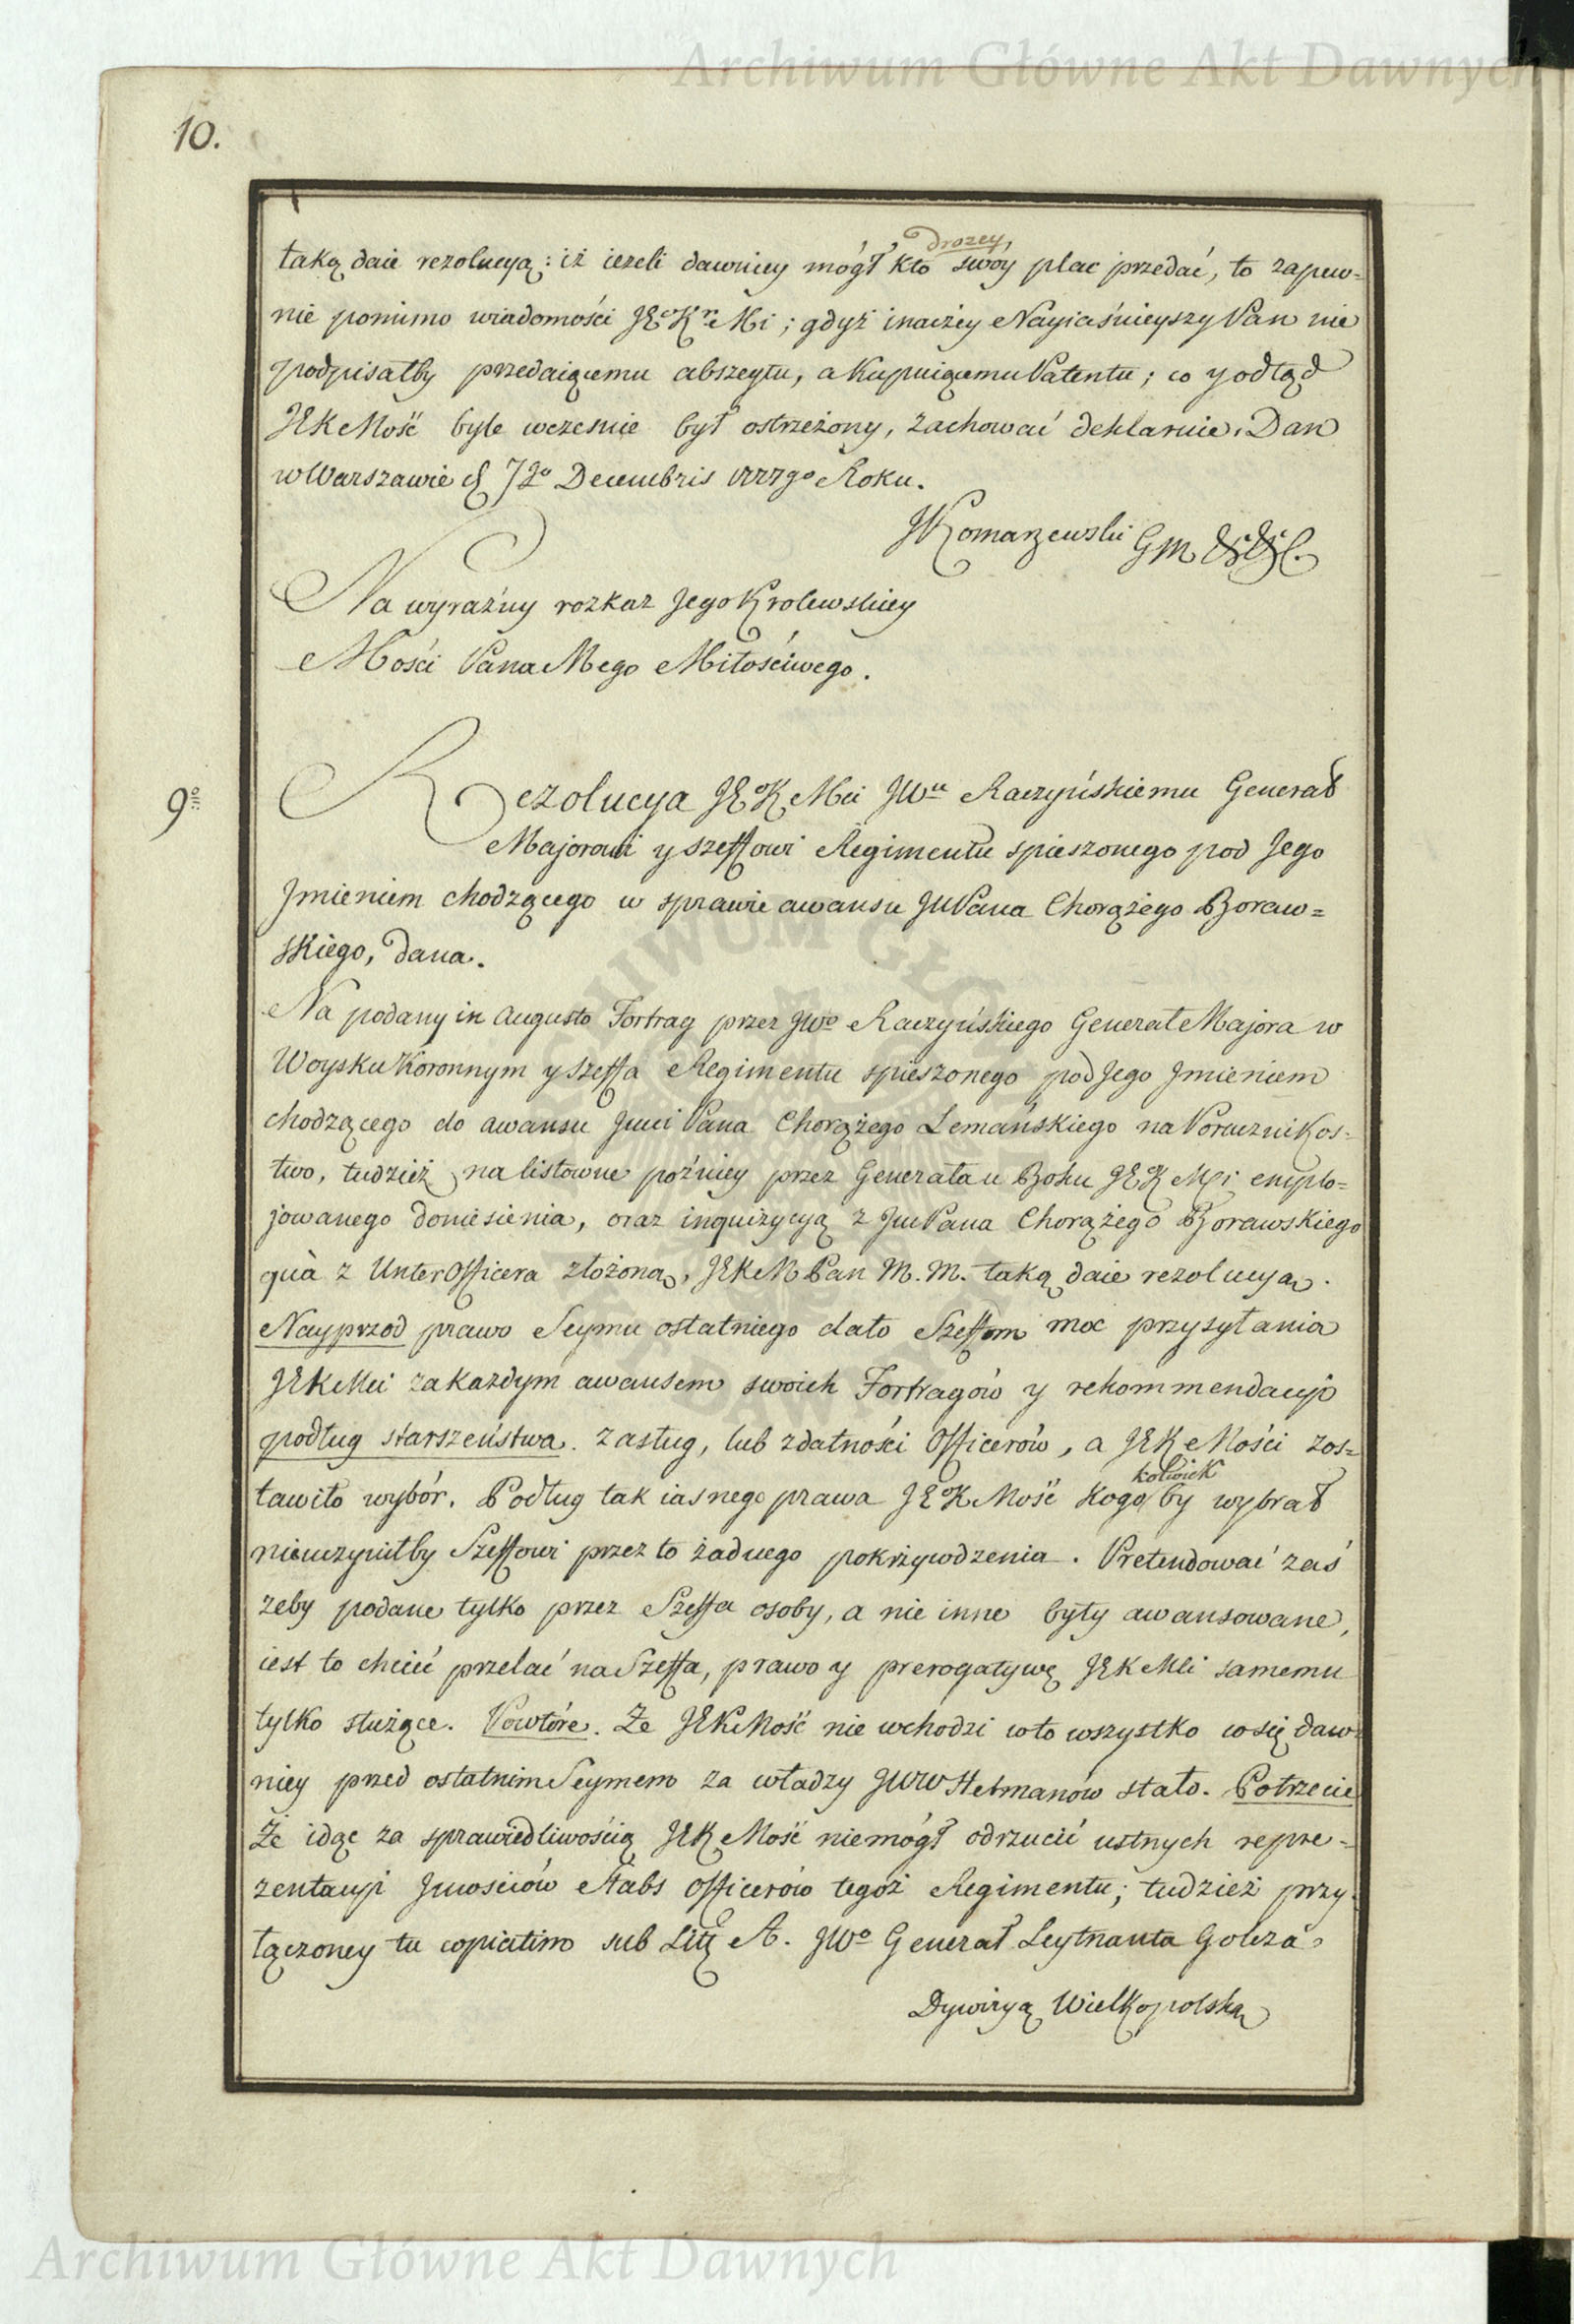 Archiwum Główne Akt Dawnych
10.
drozey
taką daie rezolucyą: iż ieżeli dawniey mógł kto swóy plac przedać, to zapew=
nie pomimo wiadomości JEoKr Mi; gdyż inaczey Nayiaśnieyszy Pan nie
podpisałby przedaiącemu abszeytu, a Kupuiącemu Patentu; co y odtąd
JEKMość byle wczesnie był ostrzeżony, zachować deklaruie. Dan
w Warszawie d 72o Decembris 1777go Roku.
JKomarzewski GM
Na wyraźny rozkaz Jego Krolewskiey
Mości Pana Mego Miłościwego.
9no
Rezolucya JEoK Mci JWu Raczyńskiemu Generał
Majorowi y Szeffowi Regimentu spieszonego pod Jego
Jmieniem chodzącego w sprawie awansu JmPana Chorążego Boraw=
skiego, dana.
Na podany in Augusto Fortrag przez JWo Raczyńskiego Generał Majora w
Woysku Koronnym y Szeffa Regimentu spieszonego pod Jego Jmieniem
chodzącego do awansu Jmci Pana Chorążego Lemańskiego na Porucznikos=
two, tudzież na listowne poźniey przez Generała u Boku JEK Mci emplo=
jowanego doniesienia, oraz inquizycyą z JmPana Chorążego Borawskiego
quà z UnterOfficera złożoną, JEKM Pan M. M. taką daie rezolucyą.
Nayprzod prawo Seymu ostatniego dało Szeffom moc przysyłania
JEKMci za każdym awansem swoich Fortragów y rekommendacyi
podług starszeństwa. zasług, lub zdatności Officerów, a JEKMości zos=
kolwiek
tawiło wybór. Podług tak iasnego prawa JEoKMość kogo by wybrał
nieuczyniłby Szeffowi przez to żadnego pokrzywdzenia. Pretendować zaś
żeby podane tylko przez Szeffa osoby, a nie inne były awansowane,
iest to chcieć przelać na Szeffa, prawo y prerogatywę JEKMci samemu
tylko służące. Powtóre. Że JEKMość nie wchodzi w to wszystko co się daw=
niey przed ostatnim Seymem za władzy JWW Hetmanów stało. Potrzecie
Że idąc za sprawiedliwością JEKMość niemógł odrzucić ustnych repre=
zentacyi Jmościów Stabs Officerów tegoż Regimentu; tudzież przy
łączoney tu copiatim sub Litt A. JWo Generał Leytnanta Golcza
Dywizyą Wielkopolską
Archiwum Główne Akt Dawnych